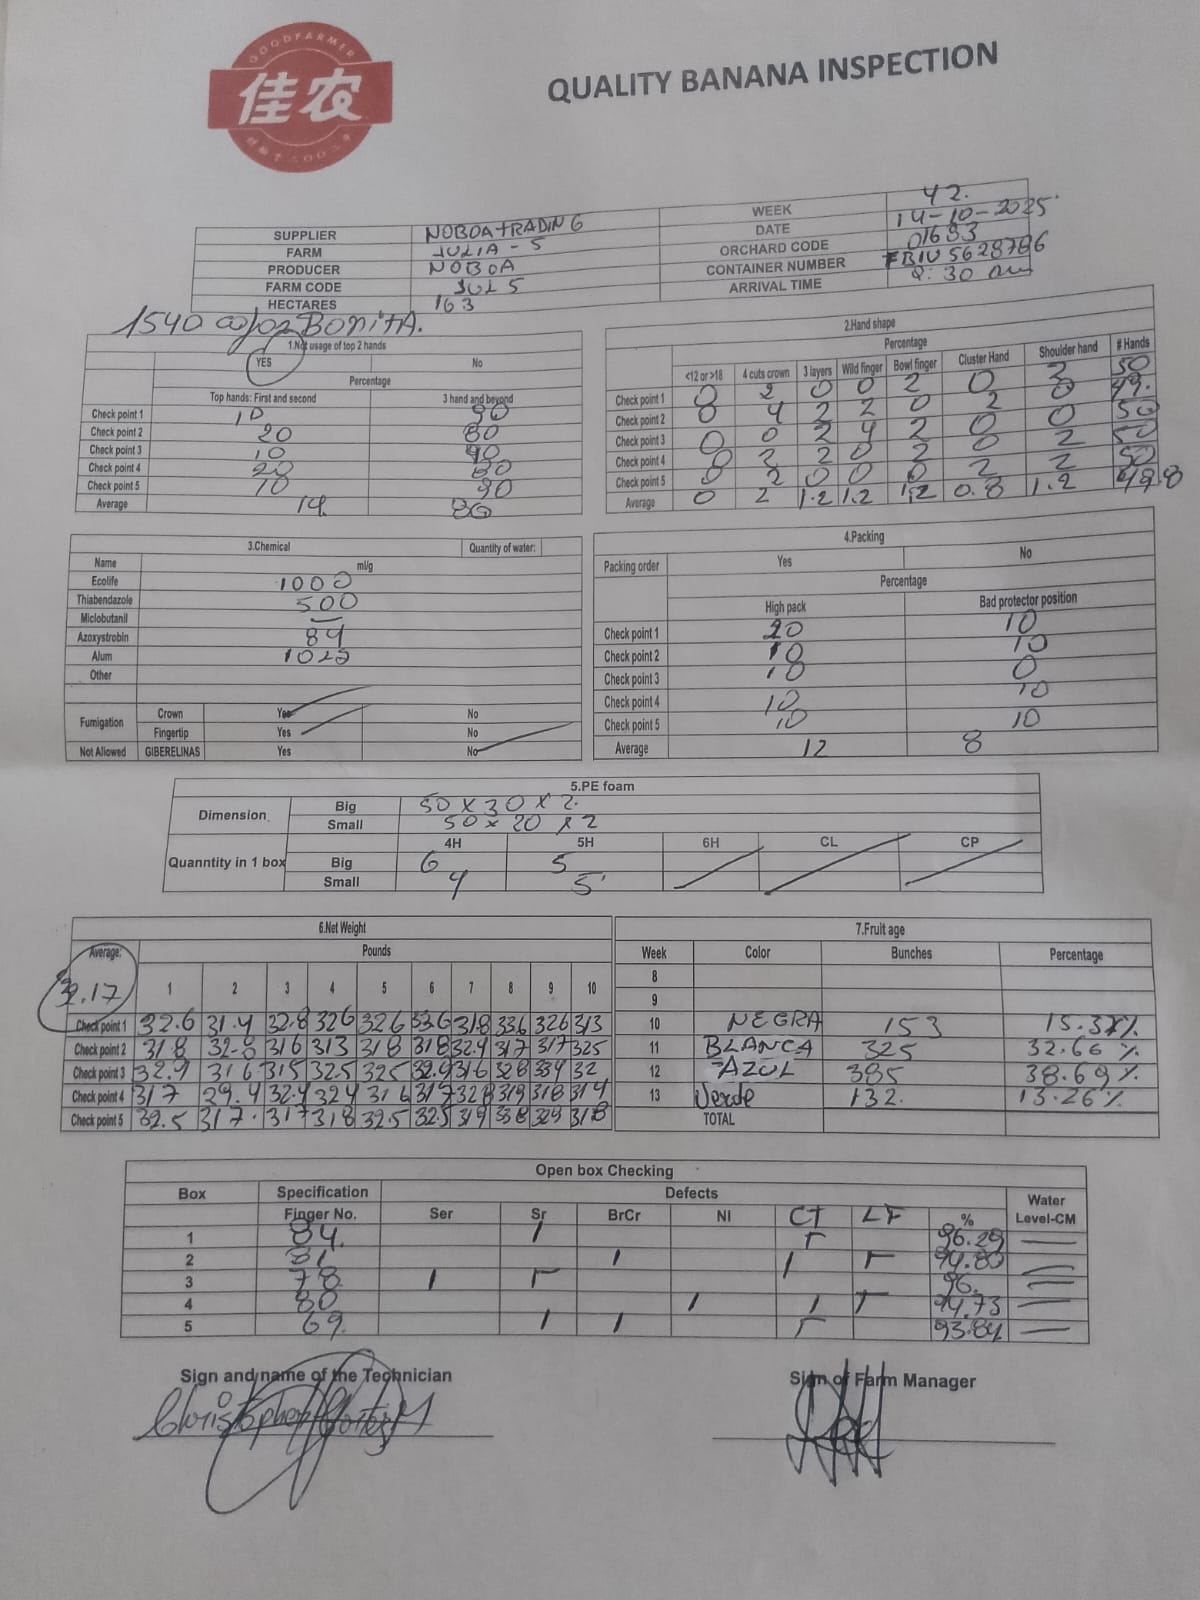 GOODFARMER
佳农
QUALITY BANANA INSPECTION
SUPPLIER NOBOATRADING WEEK 42.
FARM JULIA-5 DATE 14-10-2025
PRODUCER NOBOA ORCHARD CODE 01693
FARM CODE JUL5 CONTAINER NUMBER FBIU5628786
HECTARES 163 ARRIVAL TIME 30 am
1540 BONITA.
1.Not usage of top 2 hands
YES No
Percentage
Top hands: First and second 3 hand and beyond
Check point 1 10 90
Check point 2 20 80
Check point 3 10 90
Check point 4 20 80
Check point 5 10 90
Average 14. 86
2.Hand shape
Percentage
<12 or>18 4 cuts crown 3 layers Wild finger Bowl finger Cluster Hand Shoulder hand # Hands
Check point 1 0 2 0 0 2 0 2 50
Check point 2 0 4 2 2 0 2 0 49.
Check point 3 0 0 2 4 2 0 0 50
Check point 4 0 2 2 0 2 0 2 50
Check point 5 0 2 0 0 0 2 2 50
Average 0 2 1.2 1.2 1.2 0.8 1.2 49.8
3.Chemical Quantity of water:
Name ml/g
Ecolife 1000
Thiabendazole 500
Miclobutanil —
Azoxystrobin 84
Alum 1020
Other
Fumigation Crown Yes No
Fingertip Yes No
Not Allowed GIBERELINAS Yes No
4.Packing
Packing order Yes No
Percentage
High pack Bad protector position
Check point 1 20 10
Check point 2 10 10
Check point 3 10 0
Check point 4 10 10
Check point 5 10 10
Average 12 8
5.PE foam
Dimension Big 50 x 30 x 2.
Small 50 x 20 x 2
4H 5H 6H CL CP
Quanntity in 1 box Big 6 5
Small 4 5
6.Net Weight
Average: Pounds
32.17 1 2 3 4 5 6 7 8 9 10
Check point 1 32.6 31.4 32.8 326 326 336 318 336 326 313
Check point 2 318 32.8 316 313 318 318 32.4 317 317 325
Check point 3 32.4 316 315 325 325 32.4 316 328 334 32
Check point 4 317 29.4 32.4 324 316 317 328 319 318 314
Check point 5 32.5 317. 317 318 32.5 32.5 319 338 329 318
7.Fruit age
Week Color Bunches Percentage
8
9
10 NEGRA 153 15.37%
11 BLANCA 325 32.66 %
12 AZUL 385 38.69%
13 Verde 132. 13.26%
TOTAL
Open box Checking
Box Specification Finger No. Defects Water Level-CM
Ser Sr BrCr NI CT LF %
1 84. 96.29 —
2 81 94.80
3 78 96.
4 80 94.73 —
5 69. 93.84 —
Sign and name of the Technician Sign of Farm Manager